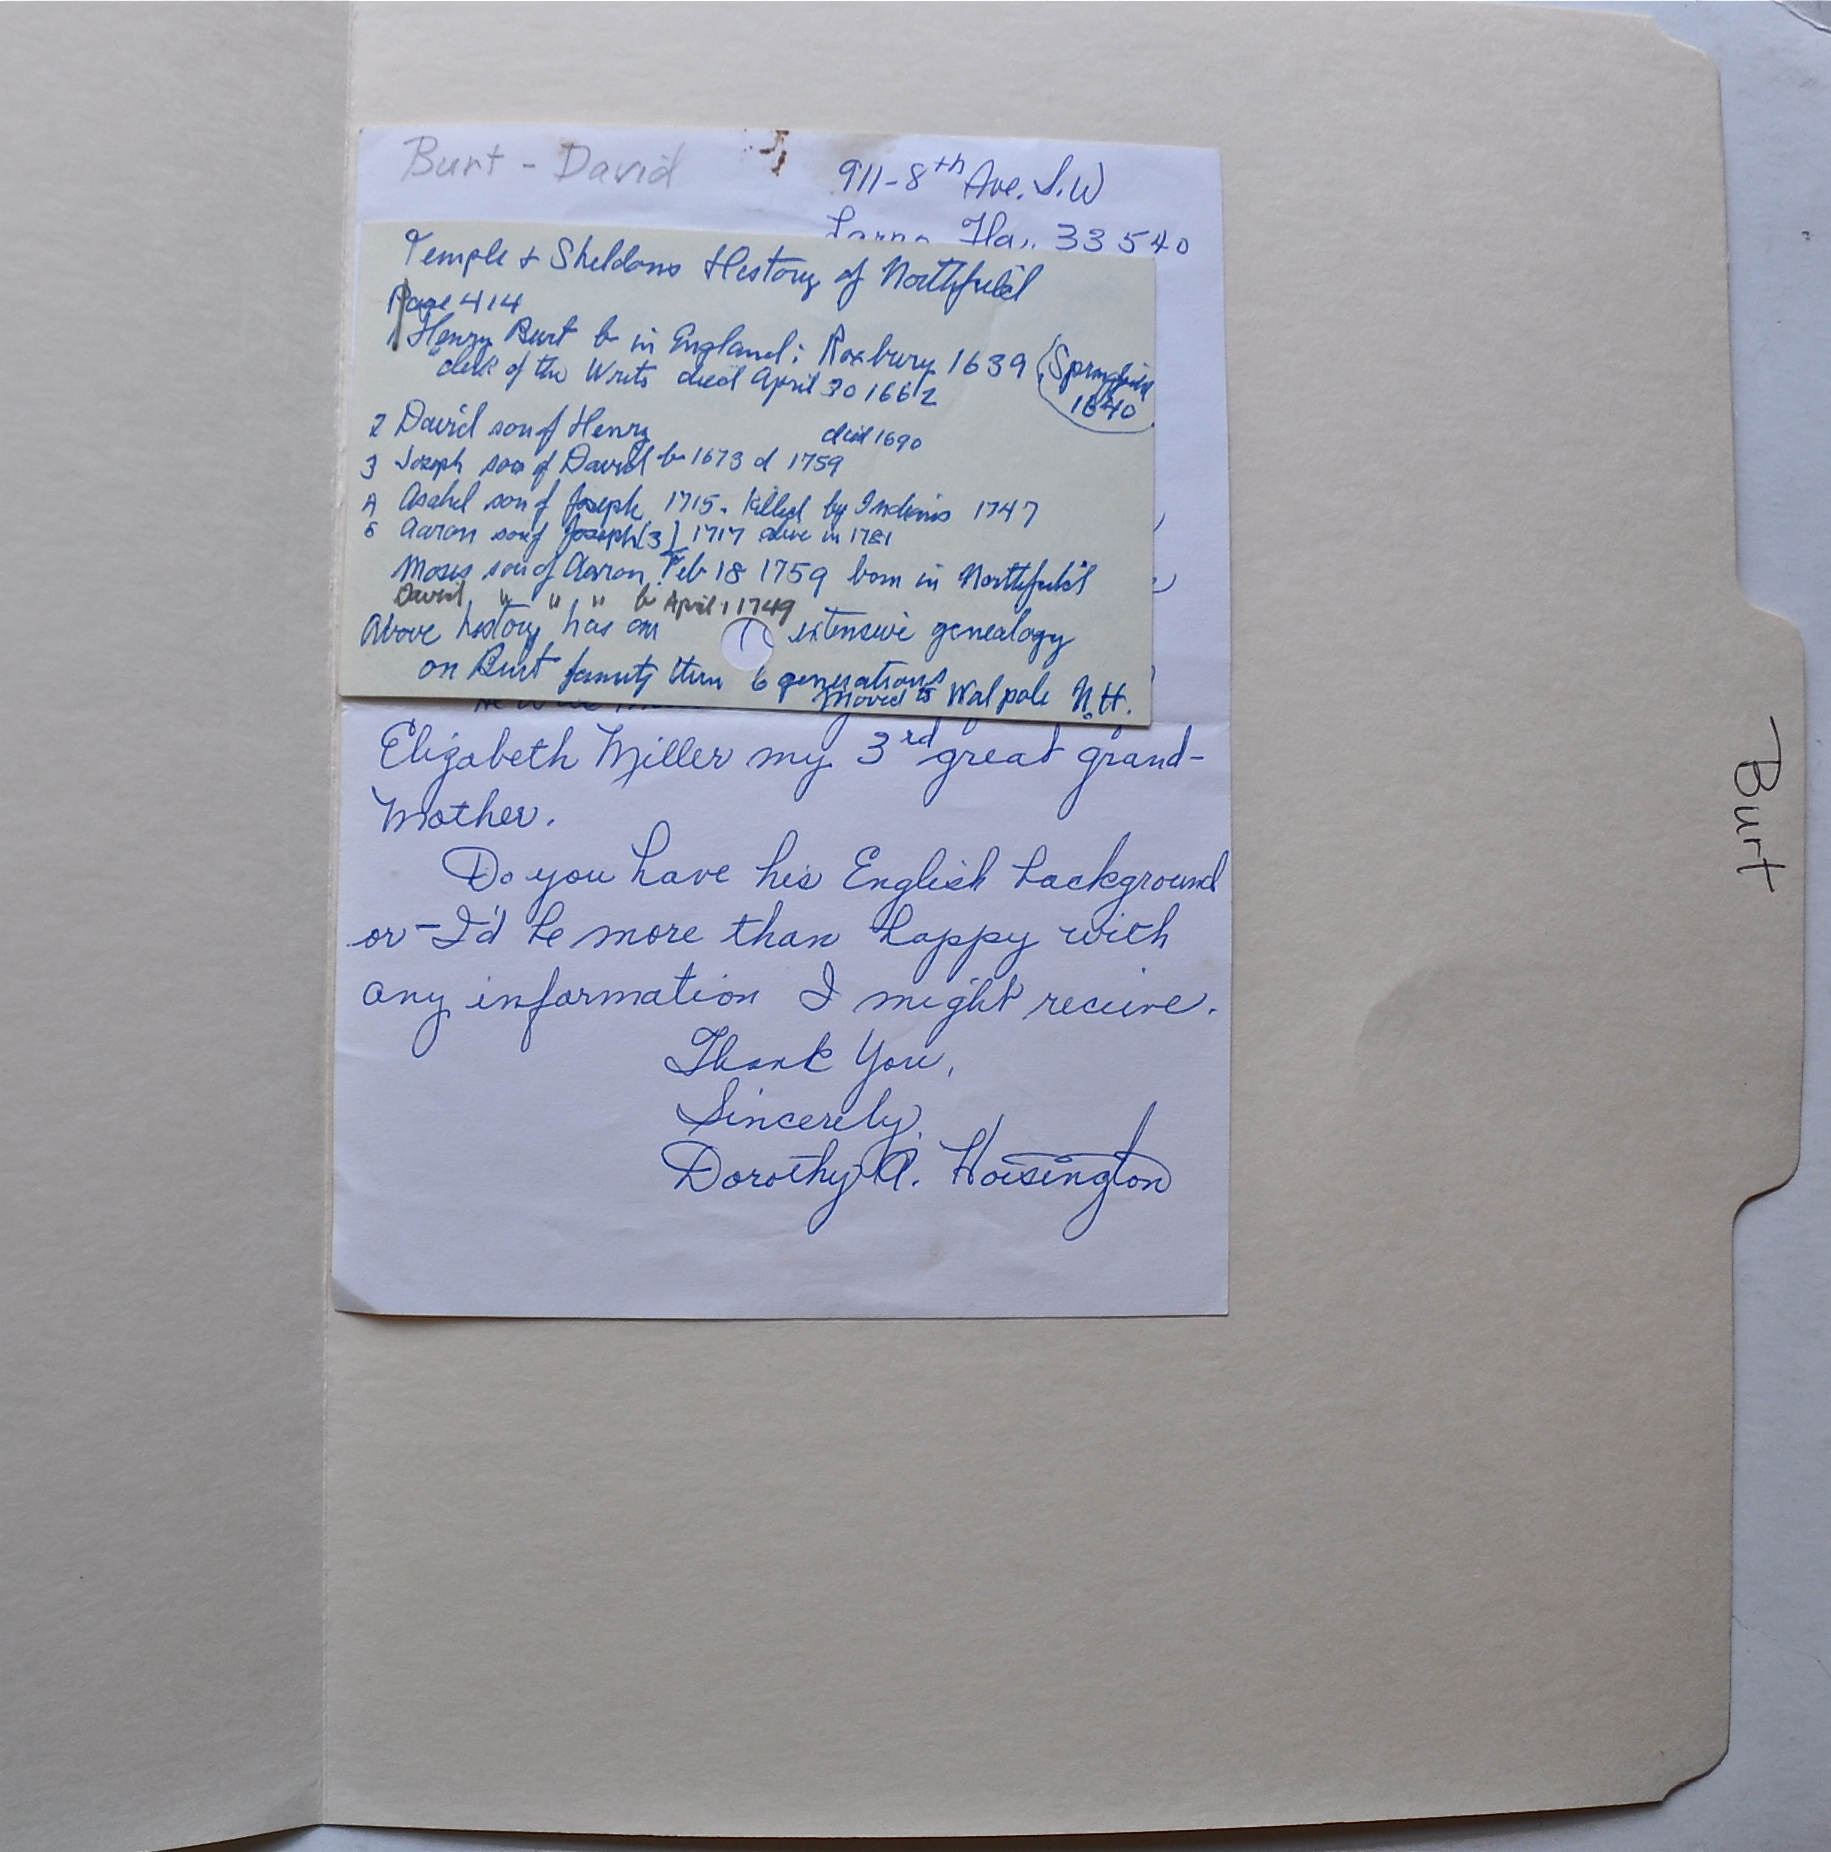 Burt - David
911-8th Ave. S.W
Largo Fla. 33540
Temple & Sheldons History of Northfield
Page 414
1 Henry Burt b in England: Roxbury 1639 (Springfield 1640
"clerk of the Writs died April 30 1662
2 David son of Henry died 1690
3 Joseph son of David b 1673 d 1759
4 Asahel son of Joseph 1715. killed by Indians 1747
5 Aaron son of Joseph [3] 1717 alive in 1781
Moses son of Aaron Feb 18 1759 born in Northfield
David " " " b April 1 1749
Above history has an extensive genealogy
on Burt family thru 6 generations
moved to Walpole N.H.
Elizabeth Miller my 3rd great grand-
mother.
Do you have his English background
or - I'd be more than happy with
any information I might recieve.
Thank You,
Sincerely,
Dorothy A. Hoisington
Burt